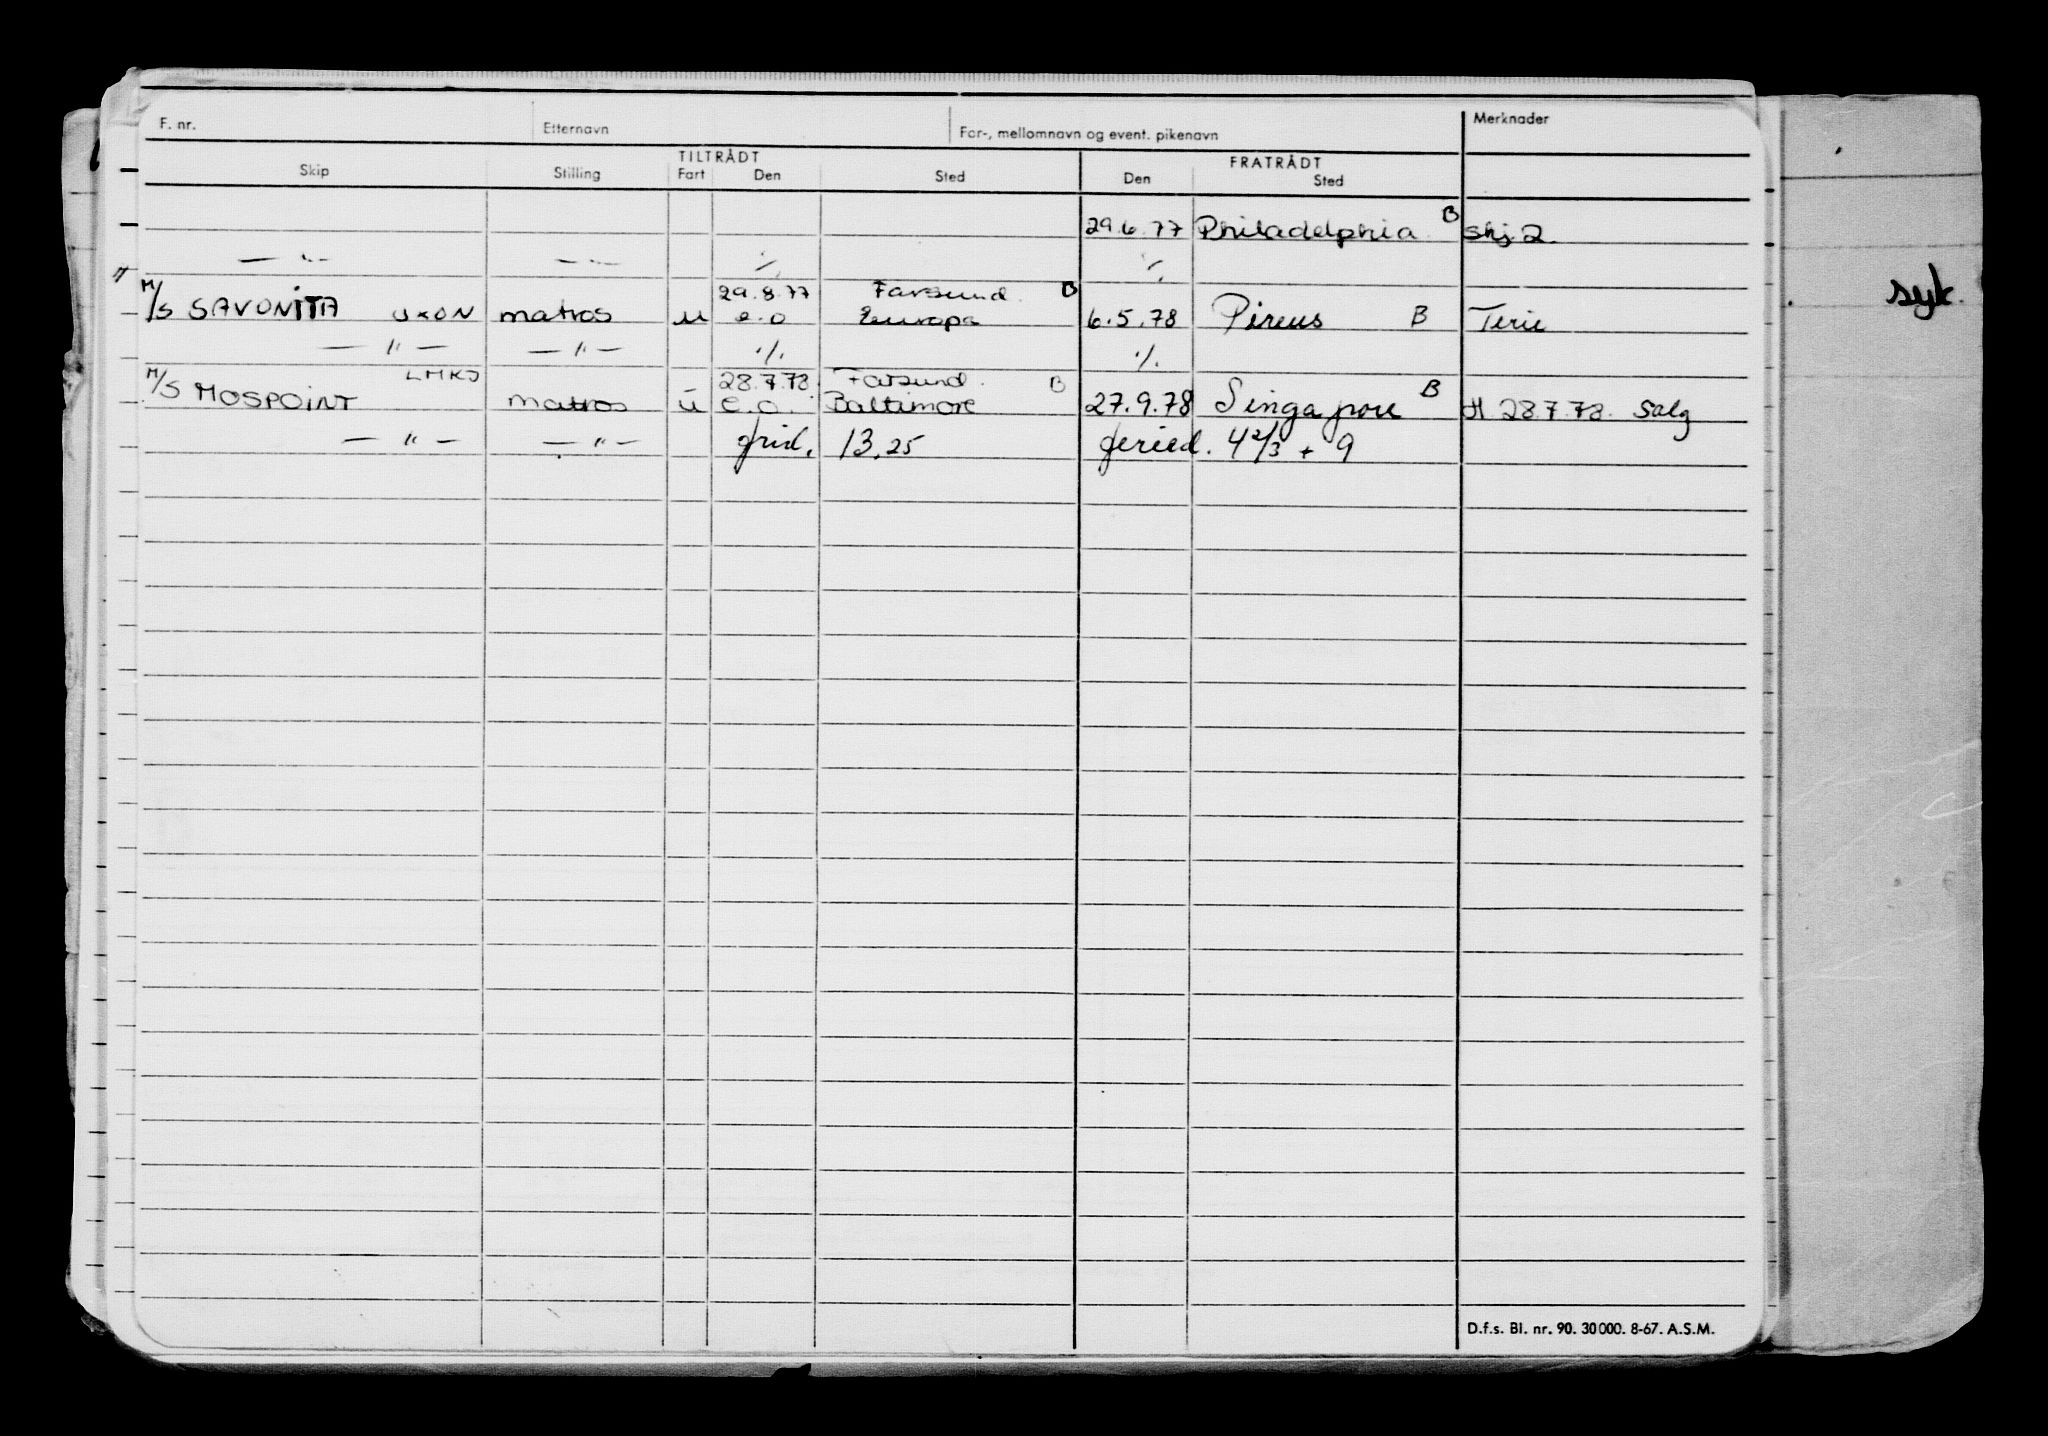 F. nr. Etternavn For-, mellomnavn og event. pikenavn Merknader
TILTRÅDT FRATRÅDT
Skip Stilling Fart Den Sted Den Sted
29.6.77 Philadelphia B Skj 2.
— " — — " — ./. ./.
29.8.77 Farsund B
M/S SAVONITA UKON matros u e.o Europa 6.5.78 Pireus B Ferie
— " — — " — ./. ./.
LMKJ 28.7.78 Farsund B
M/S MOSPOINT matros u e.o. Baltimore 27.9.78 Singapore B H 28.7.78. Salg
— " — — " — frid. 13.25 feried. 4 2/3 + 9
syk.
D.f.s. Bl. nr. 90. 30000. 8-67. A.S.M.